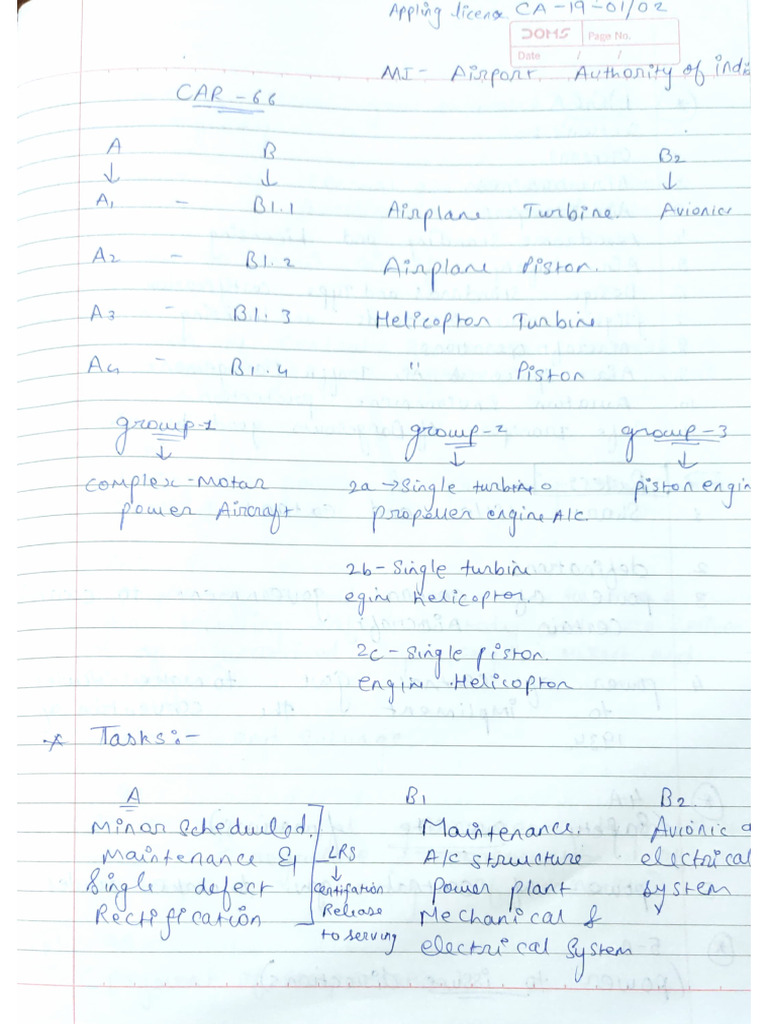 Appling license CA-19-01/02
DOMS Page No.
Date / /
MI- Airport Authority of Indi
CAR-66
A B B2
↓ ↓ ↓
A1 - B1.1 Airplane Turbine. Avionics
A2 - B1.2 Airplane Piston.
A3 - B1.3 Helicoptor Turbine
A4 - B1.4 " Piston
group-1 group-2 group-3
↓ ↓ ↓
complex-Motar 2a → Single turbine piston engin
power Aircraft propoller engine A/C.
2b- Single turbine
egine helicoptor.
2c- Single piston.
engin Helicoptor
* Tasks:-
A B1 B2.
Minor Scheduled. Maintenance. Avionic
Maintenance & LRS A/c structure electrical
↓
Single defect Certifation power plant system
Rectification Release Mechanical &
to serving electrical system